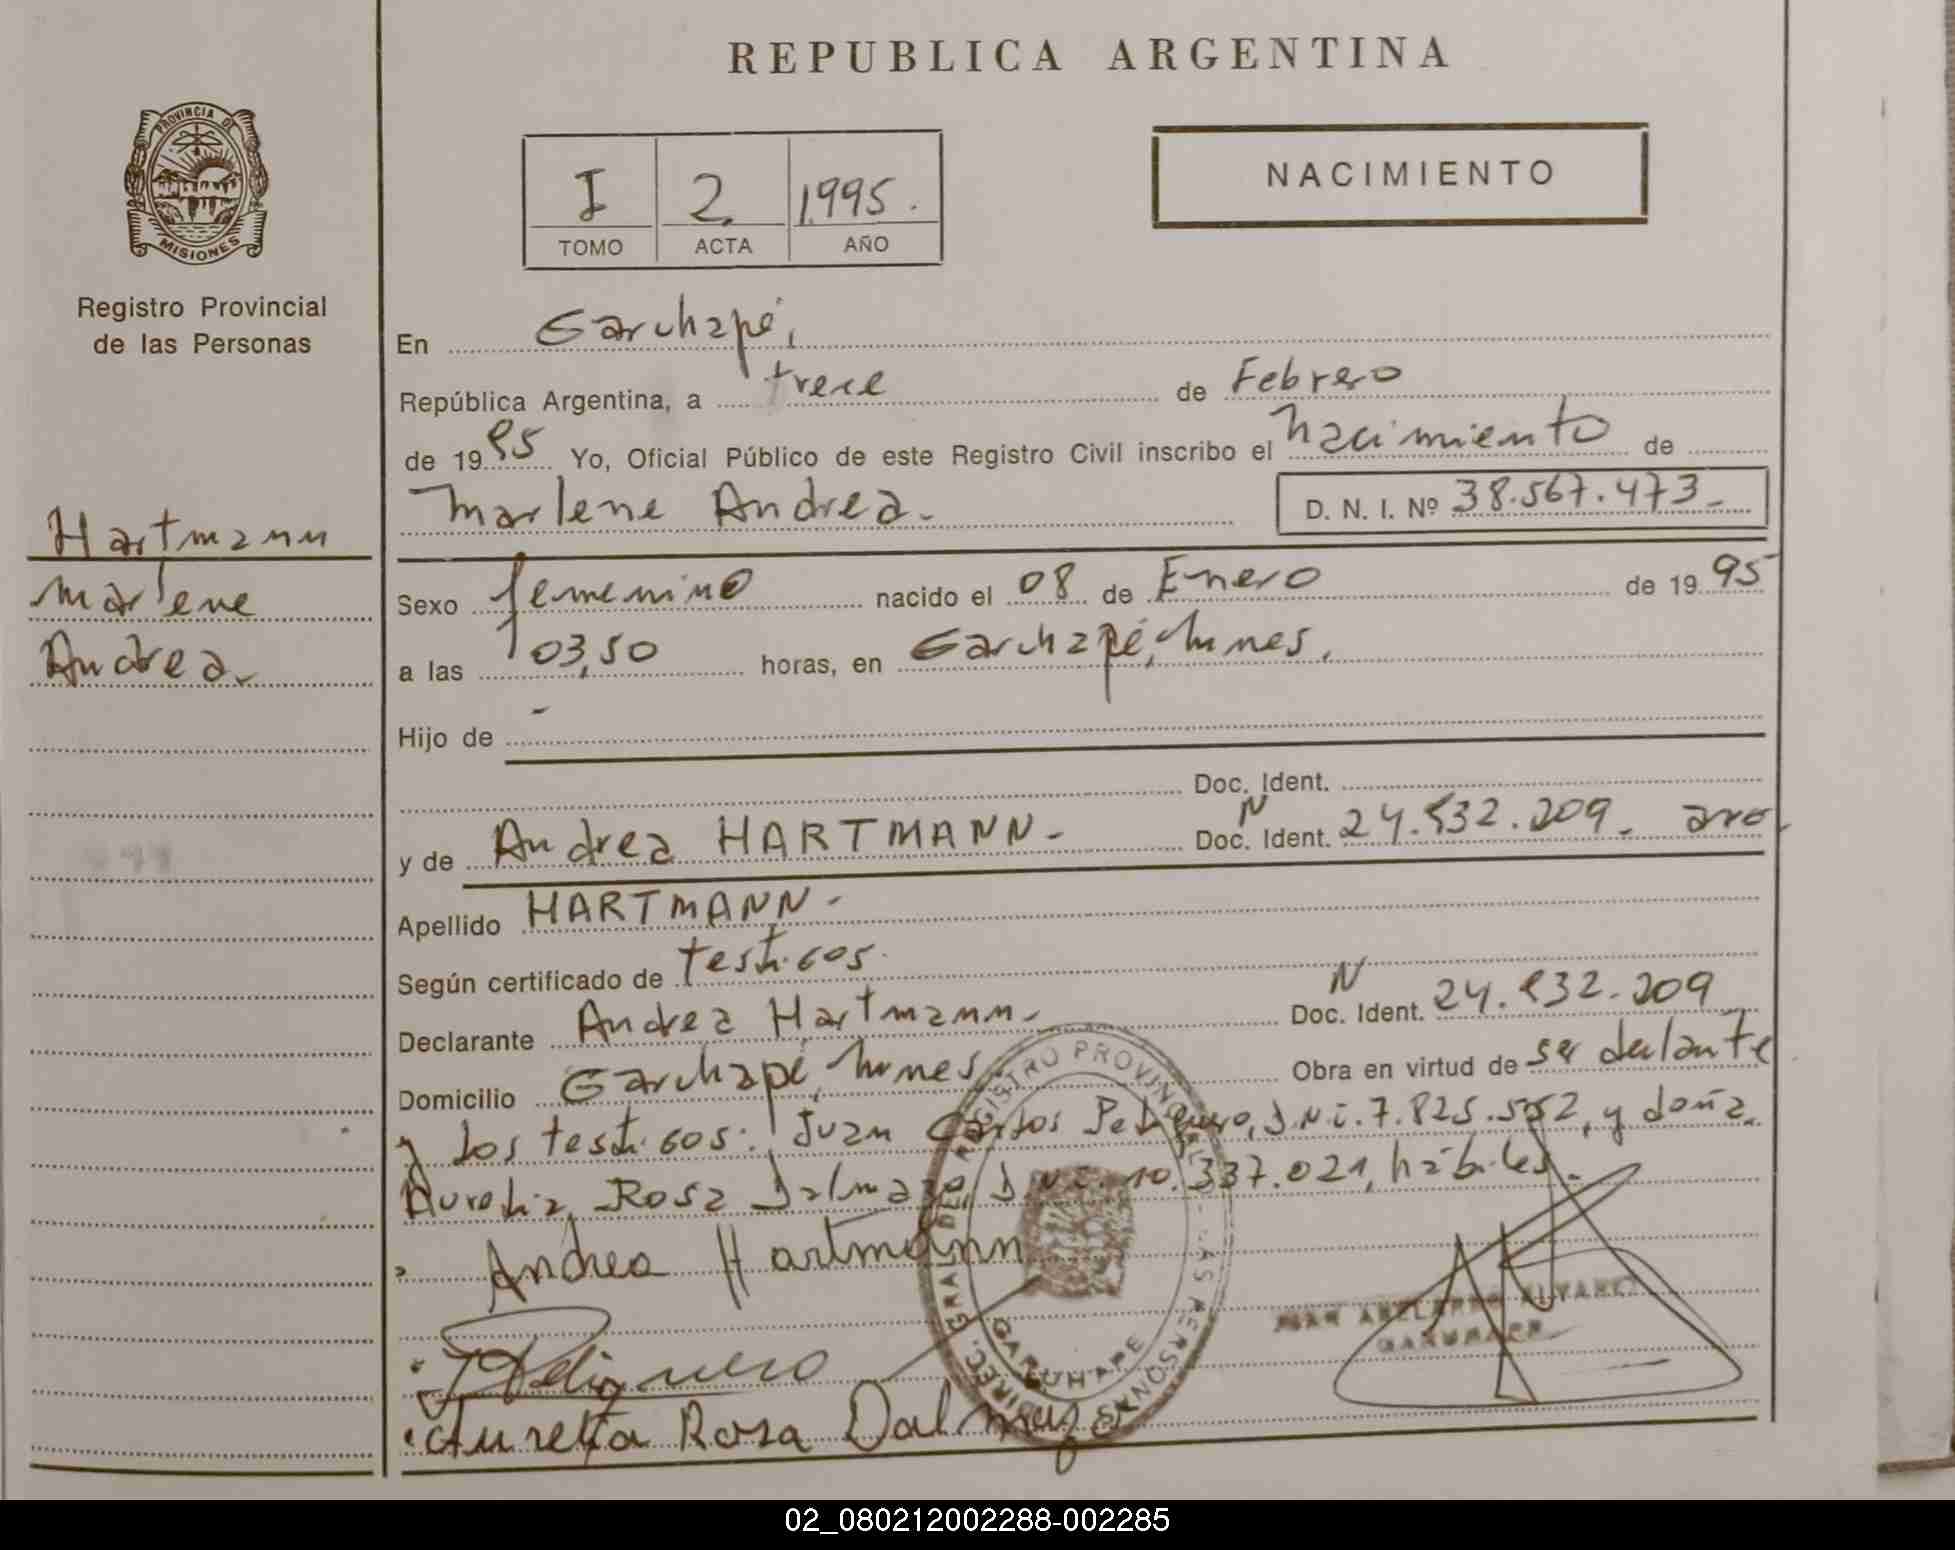 REPUBLICA ARGENTINA
PROVINCIA DE
MISIONES
Registro Provincial
de las Personas
I 2 1995.
TOMO ACTA AÑO
NACIMIENTO
En Garuhapé,
República Argentina, a trece de Febrero
de 1995 Yo, Oficial Público de este Registro Civil inscribo el Nacimiento de
Marlene Andrea. D. N. I. Nº 38.567.473-
Hartmann
Marlene
Andrea.
Sexo femenino nacido el 08 de Enero de 1995
a las 03,50 horas, en Garuhapé, Mnes,
Hijo de -
Doc. Ident.
y de Andrea HARTMANN- Doc. N Ident. 24.932.209. arg.
Apellido HARTMANN-
Según certificado de testigos.
Declarante Andrea Hartmann- N Doc. Ident. 24.932.209
Domicilio Garuhapé, Mnes Obra en virtud de ser declante
y los testigos: Juan Carlos D.N.I. 7.825.552, y doña
Aurelia Rosa Dalmazo D.N.I. 10.337.021, hábiles.
Andrea Hartmann
DIREC. GRAL DEL REGISTRO PROVINCIAL DE LAS PERSONAS
GARUHAPE
JUAN ABELARDO ALVAREZ
GARUHAPE
Aurelia Rosa Dalmazo
02_080212002288-002285